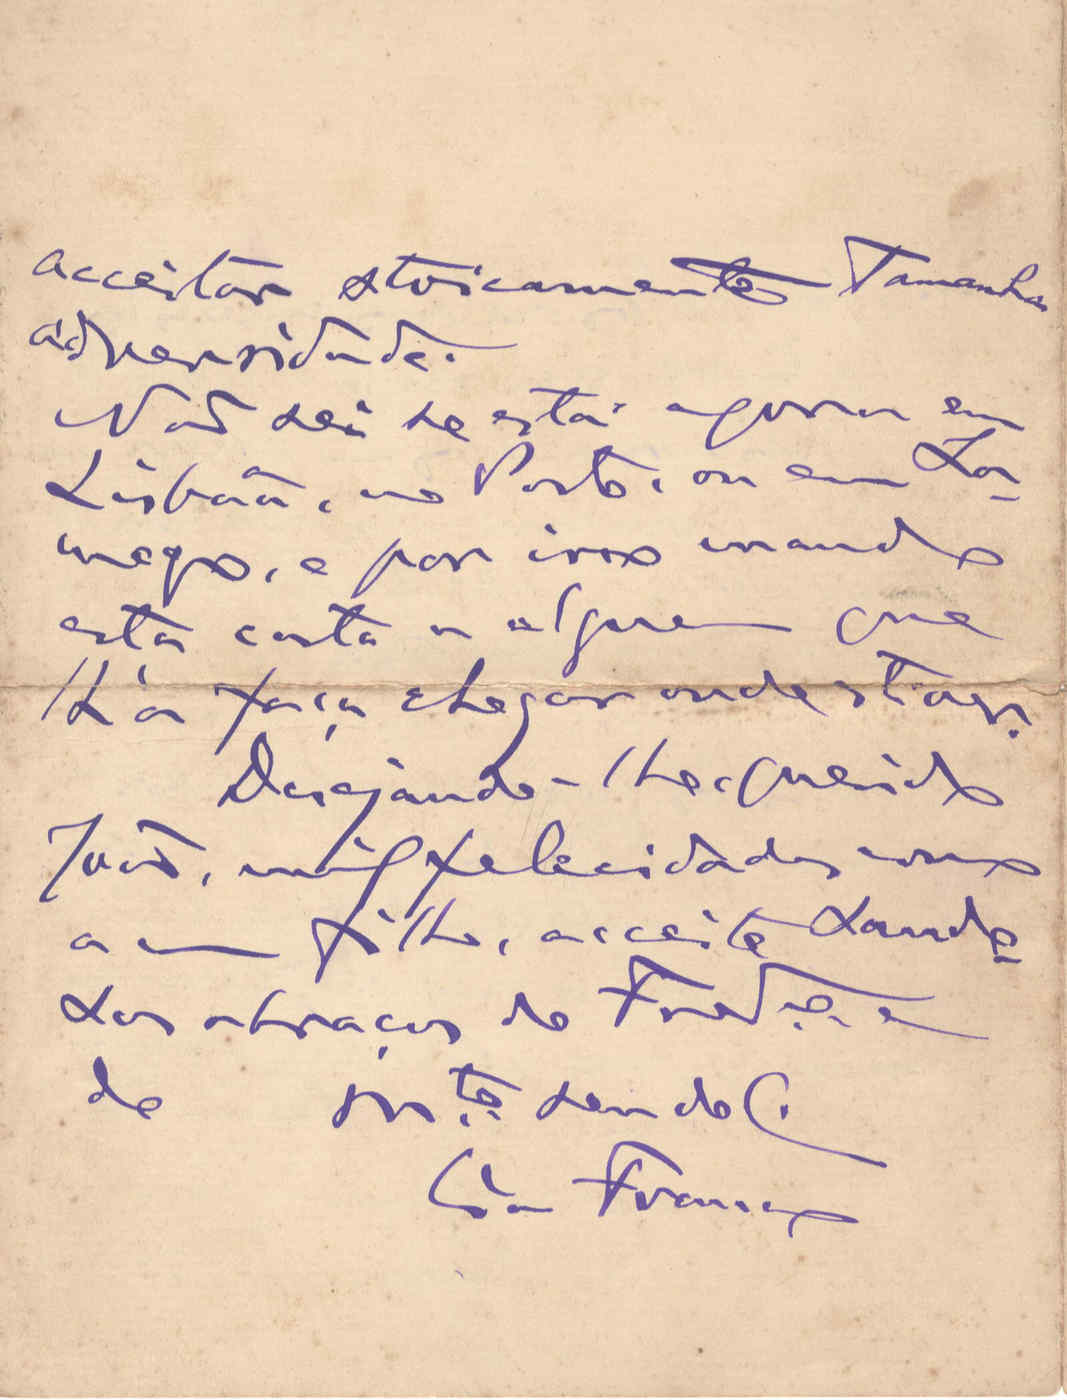 acceitar stoicamente tamanha
adversidade.
Não sei se está agora em
Lisboa, no Porto, ou em La-
mego, e por isso mando
esta carta a alguem que
lh'a faça chegar onde estiver.
Desejando-lhe, querido
João, mil felecidades como
a um filho, acceite sauda-
sos abraços do
de mto seu do C.